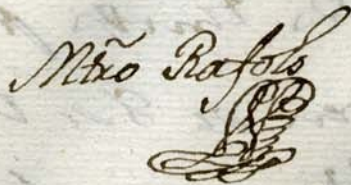 Mtrõ Rafols